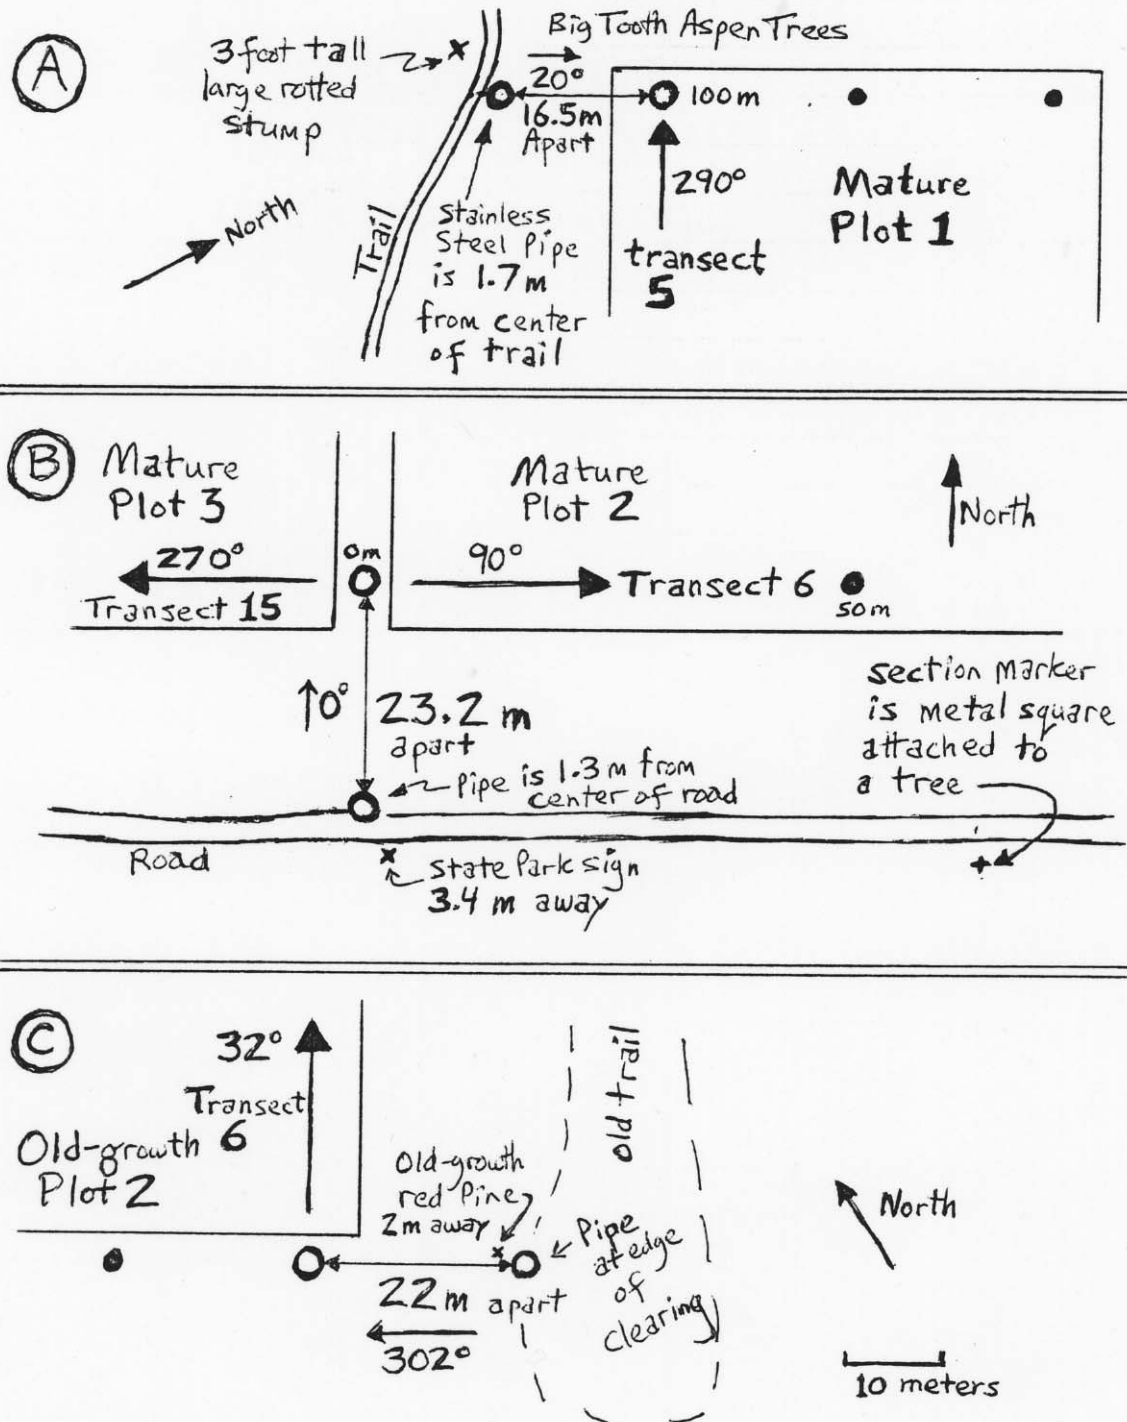 A
3 foot tall
large rotted
stump
x
Big Tooth Aspen Trees
20°
16.5m
Apart
100m
290°
transect
5
Mature
Plot 1
North
Trail
Stainless
Steel Pipe
is 1.7m
from center
of trail
B
Mature
Plot 3
270°
Transect 15
0m
Mature
Plot 2
90°
Transect 6
50m
North
↑0°
23.2 m
apart
Pipe is 1.3 m from
center of road
section marker
is metal square
attached to
a tree
Road
x
State Park sign
3.4 m away
+
C
32°
Transect
6
Old-growth
Plot 2
Old-growth
red Pine
2m away
x
22m apart
302°
Old trail
Pipe
at edge
of
clearing
North
10 meters